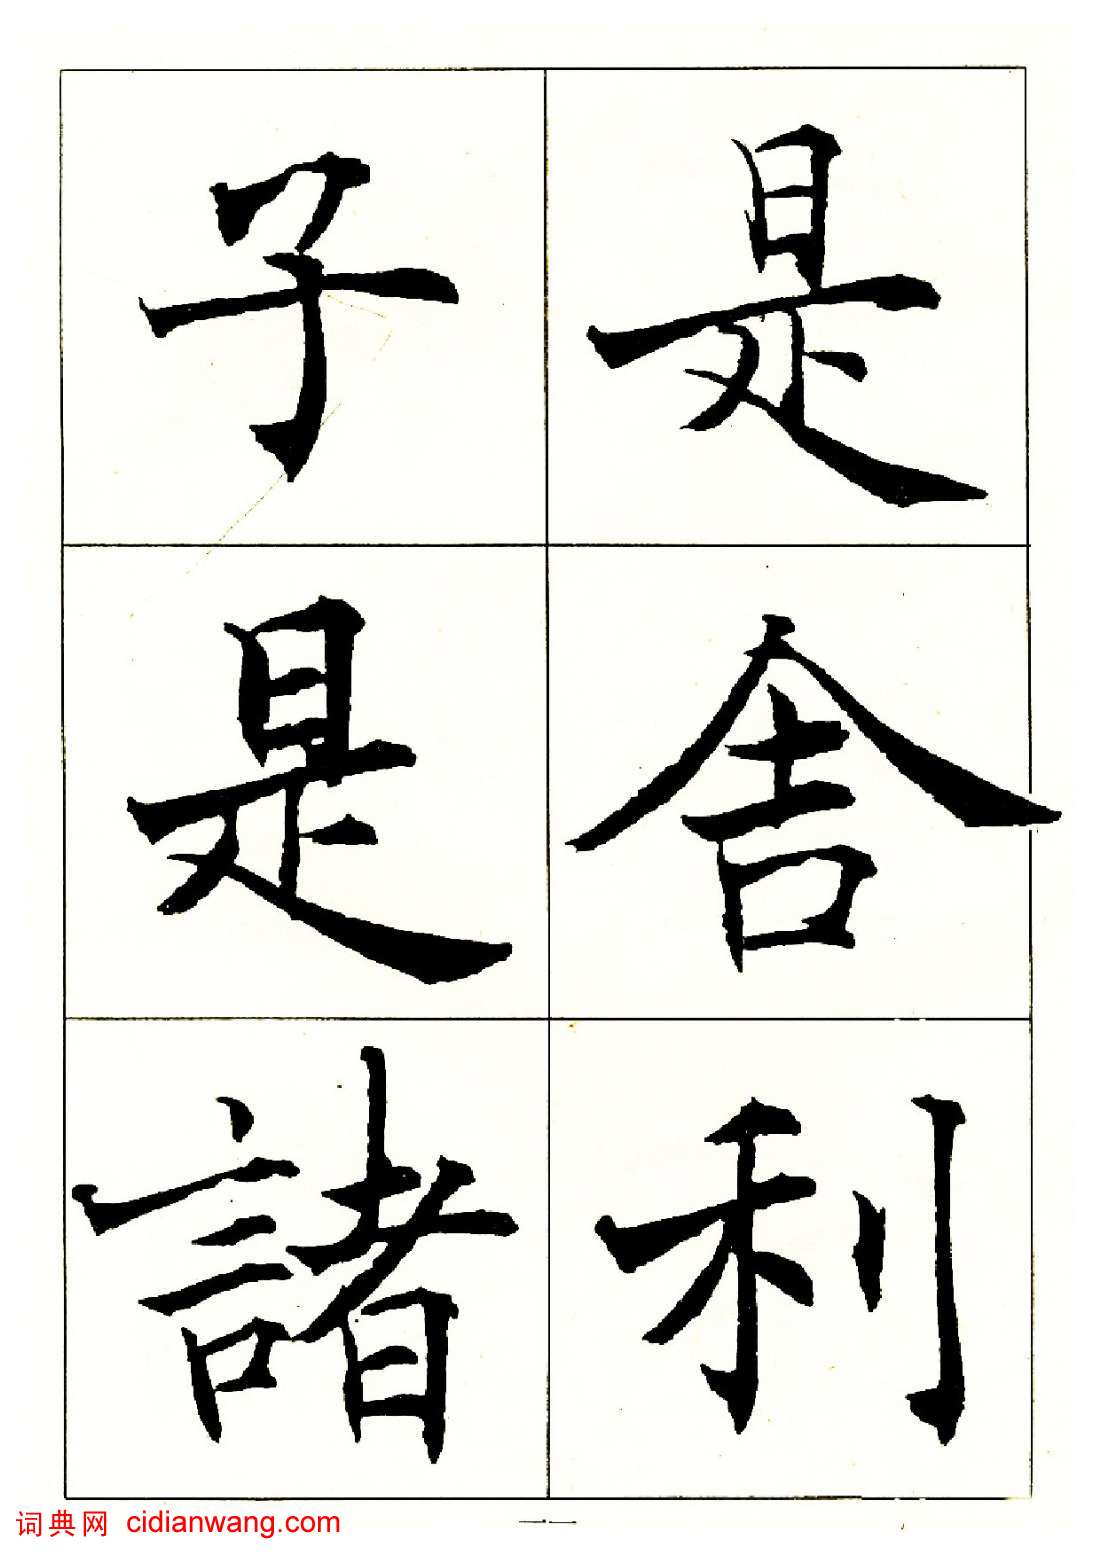 是舍利
子是諸
词典网 cidianwang.com